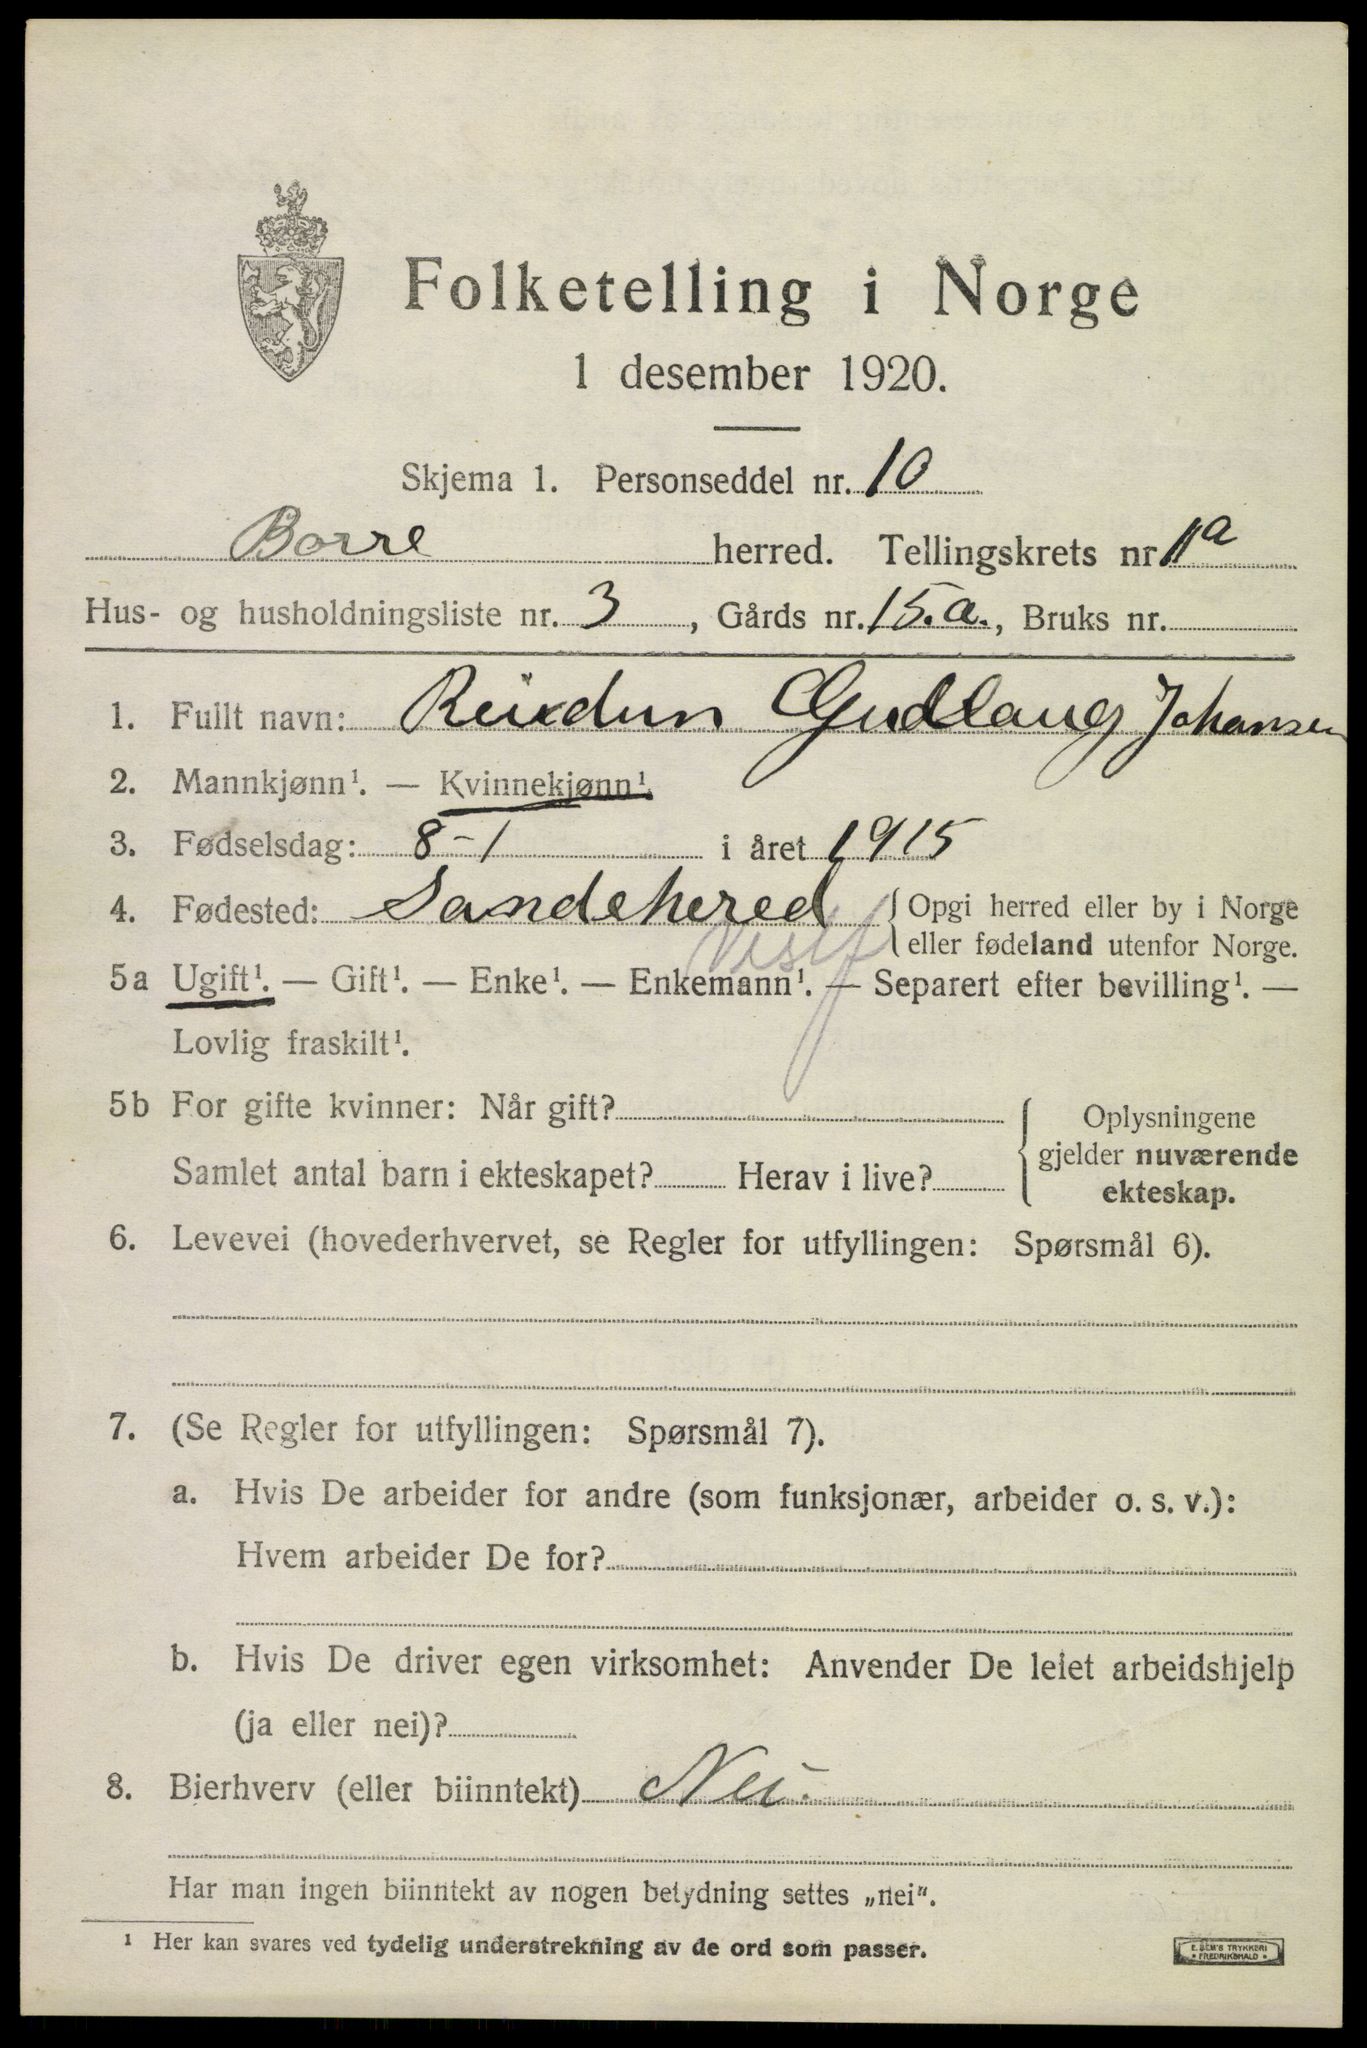 Folketelling i Norge
1 desember 1920.
Skjema 1. Personseddel nr. 10
Borre herred. Tellingskrets nr 11a
Hus- og husholdningsliste nr. 3, Gårds nr. 15.a., Bruks nr.
1. Fullt navn: Reidun Gudlaug Johansen
2. Mannkjønn¹. — Kvinnekjønn¹.
3. Fødselsdag: 8-1 i året 1915
4. Fødested: Sandehered { Opgi herred eller by i Norge
eller fødeland utenfor Norge.
Vestf
5a Ugift¹. — Gift¹. — Enke¹. — Enkemann¹. — Separert efter bevilling¹. —
Lovlig fraskilt¹.
5b For gifte kvinner: Når gift? { Oplysningene
gjelder nuværende
Samlet antal barn i ekteskapet? Herav i live? ekteskap.
6. Levevei (hovederhvervet, se Regler for utfyllingen: Spørsmål 6).
7. (Se Regler for utfyllingen: Spørsmål 7).
a. Hvis De arbeider for andre (som funksjonær, arbeider o. s. v.):
Hvem arbeider De for?
b. Hvis De driver egen virksomhet: Anvender De leiet arbeidshjelp
(ja eller nei)?
8. Bierhverv (eller biinntekt) Nei.
Har man ingen biinntekt av nogen betydning settes „nei".
¹ Her kan svares ved tydelig understrekning av de ord som passer.
E. SEM'S TRYKKERI
• FREDRIKSHALD •